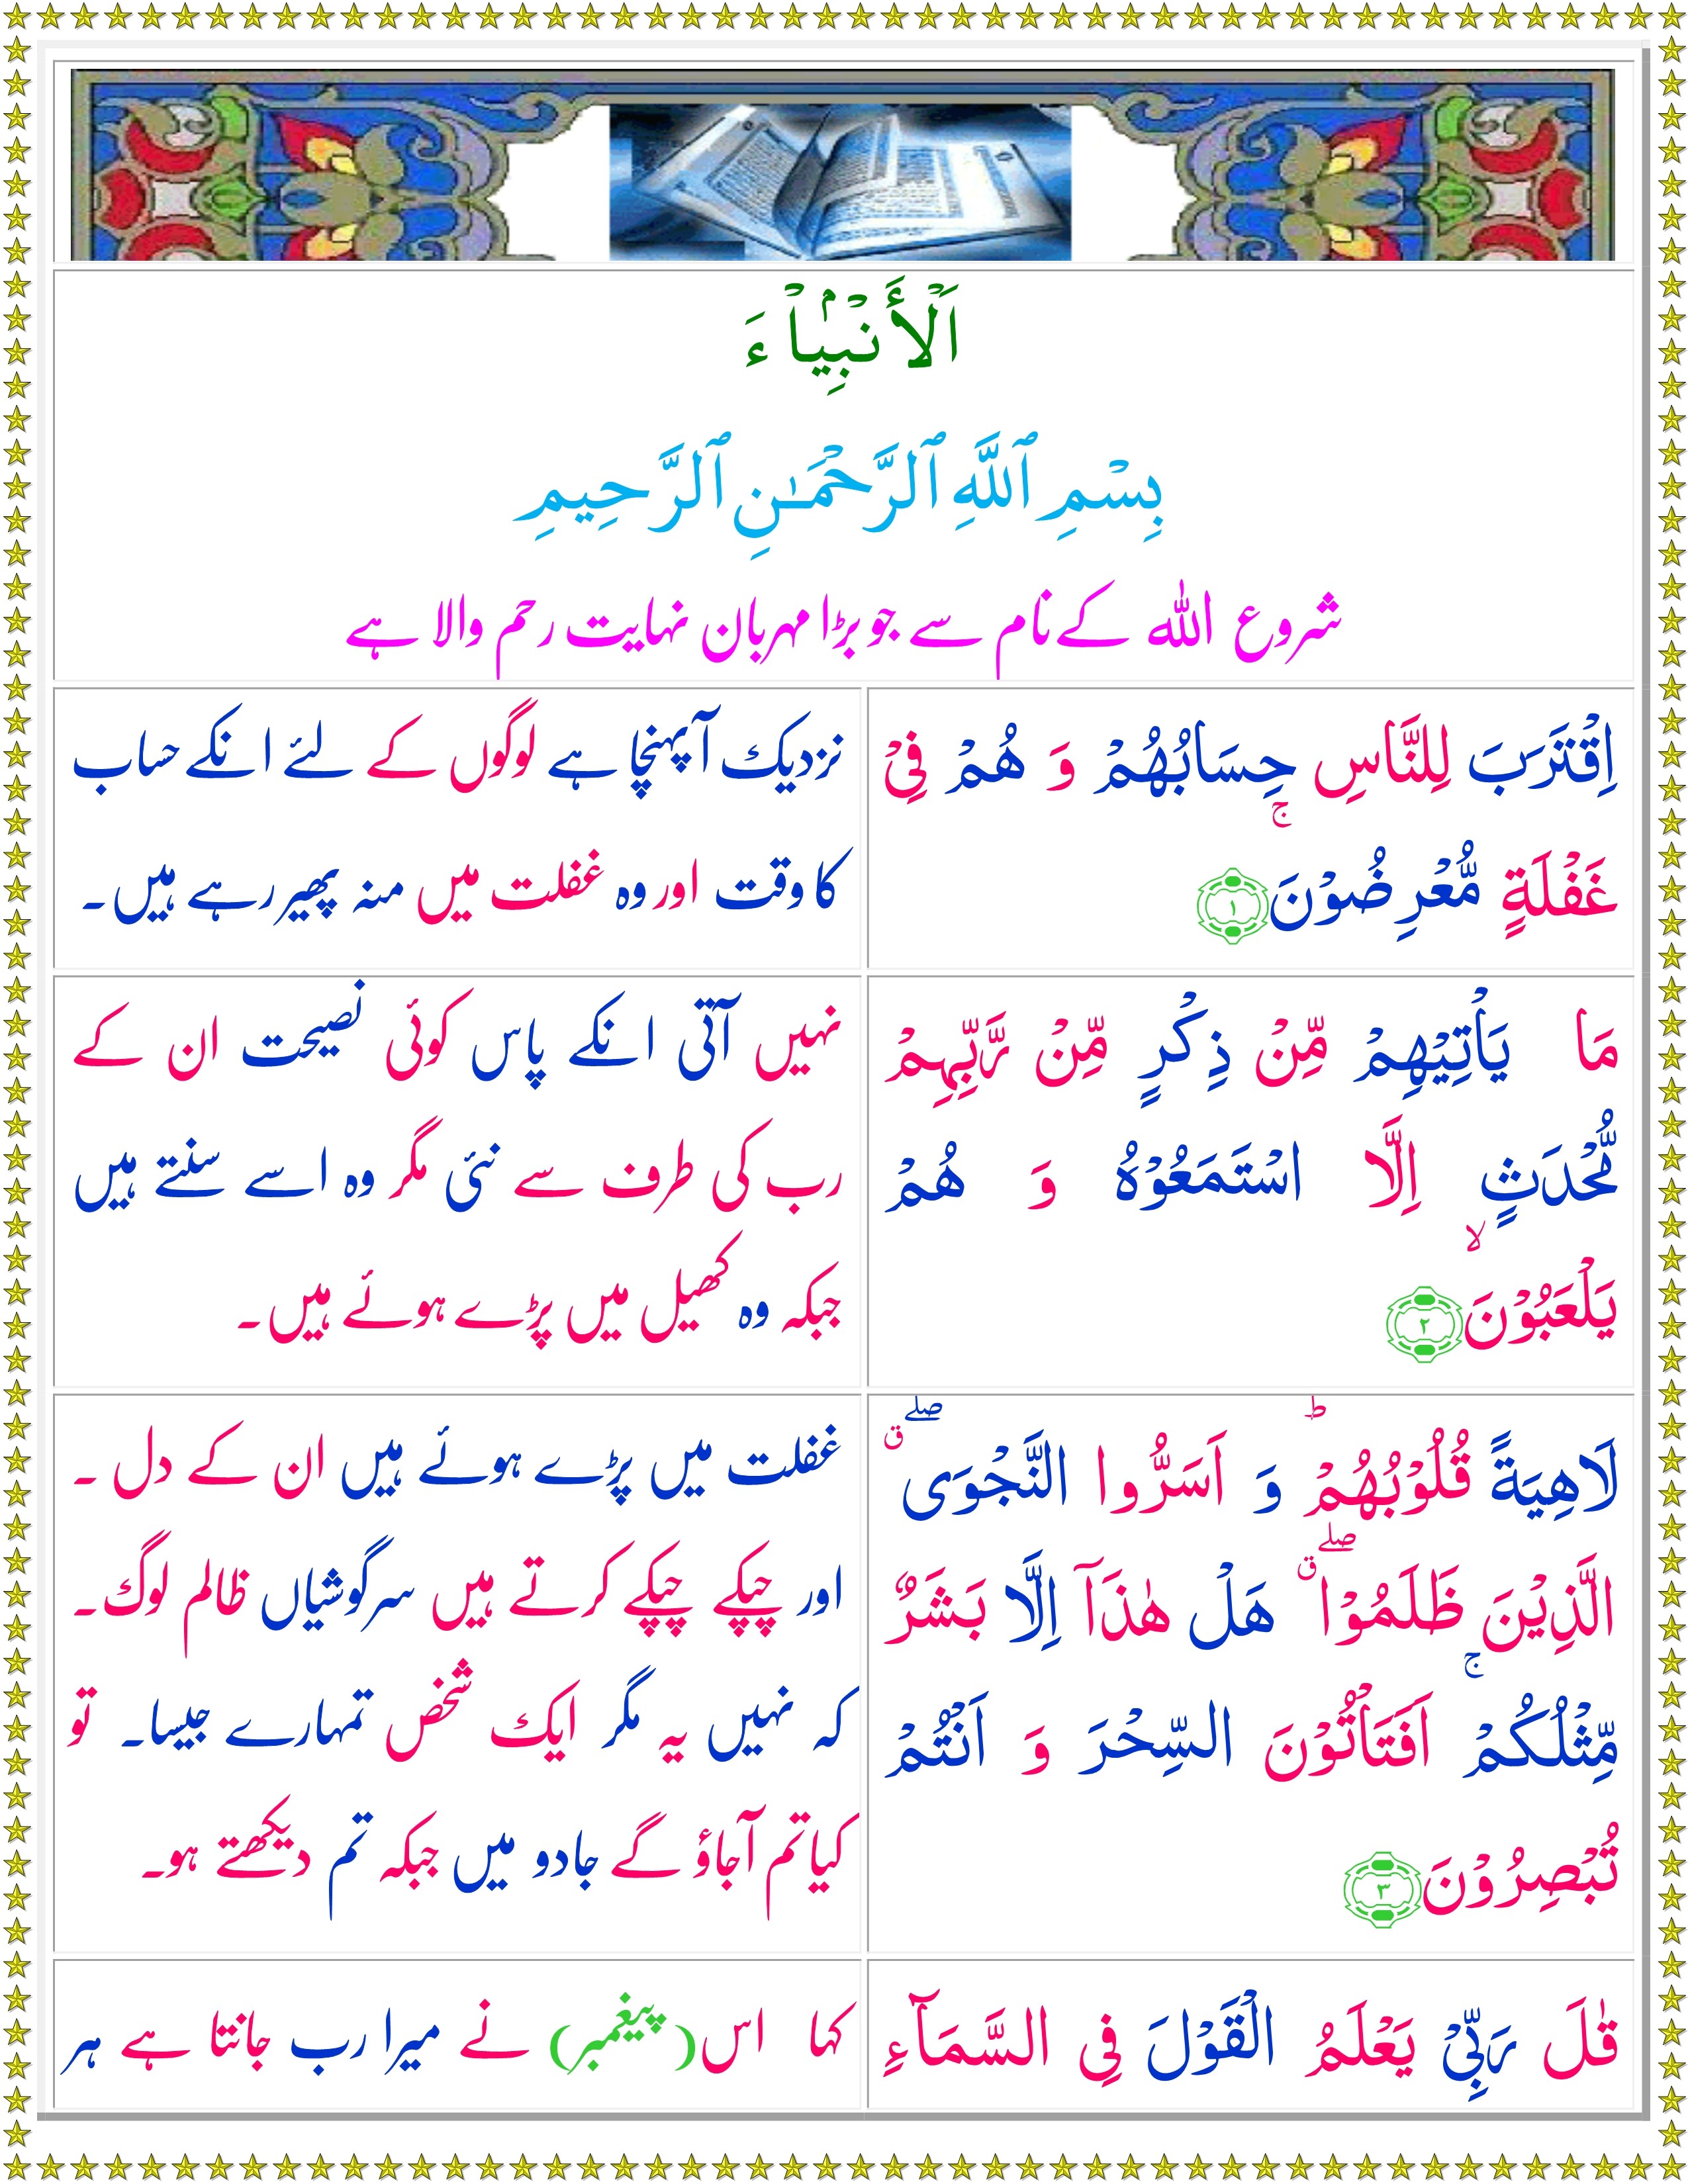 اَلْأَنْۢبِيَاْءَ
بِسْمِ ٱللَّهِ ٱلرَّحْمَـٰنِ ٱلرَّحِيمِ
شروع اللہ کے نام سے جو بڑا مہربان نہایت رحم والا ہے
اِقْتَرَبَ لِلنَّاسِ حِسَابُهُمْ وَ هُمْ فِیْ
غَفْلَةٍ مُّعْرِضُوْنَۚ ۝۱
نزدیک آپہنچا ہے لوگوں کے لئے انکے حساب
کا وقت اور وہ غفلت میں منہ پھیر رہے ہیں۔
مَا یَاْتِیْهِمْ مِّنْ ذِكْرٍ مِّنْ رَّبِّهِمْ
مُّحْدَثٍ اِلَّا اسْتَمَعُوْهُ وَ هُمْ
یَلْعَبُوْنَۙ ۝۲
نہیں آتی انکے پاس کوئی نصیحت ان کے
رب کی طرف سے نئی مگر وہ اسے سنتے ہیں
جبکہ وہ کھیل میں پڑے ہوئے ہیں۔
لَاهِیَةً قُلُوْبُهُمْؕ وَ اَسَرُّوا النَّجْوَیۖۗ
الَّذِیْنَ ظَلَمُوْاۖۗ هَلْ هٰذَاۤ اِلَّا بَشَرٌ
مِّثْلُكُمْۚ اَفَتَاْتُوْنَ السِّحْرَ وَ اَنْتُمْ
تُبْصِرُوْنَ ۝۳
غفلت میں پڑے ہوئے ہیں ان کے دل ۔
اور چپکے چپکے کرتے ہیں سرگوشیاں ظالم لوگ۔
کہ نہیں یہ مگر ایک شخص تمہارے جیسا۔ تو
کیا تم آجاؤ گے جادو میں جبکہ تم دیکھتے ہو۔
قٰلَ رَبِّیْ یَعْلَمُ الْقَوْلَ فِی السَّمَآءِ
کہا اس (پیغمبر) نے میرا رب جانتا ہے ہر